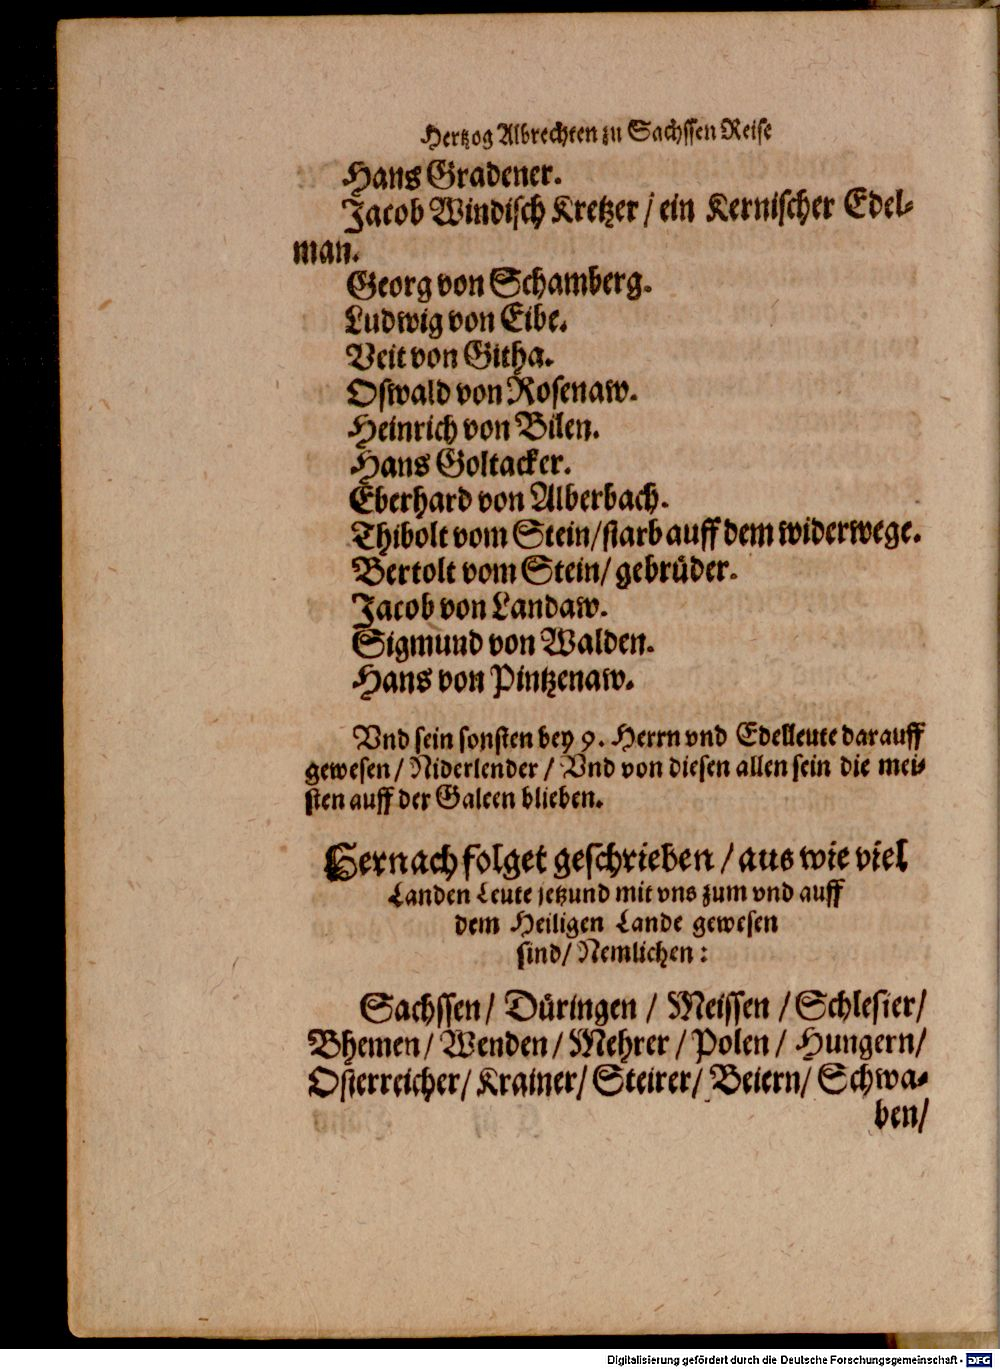 Hertzog Albrechten zu Sachssen Reise
Hans Gradener.
Jacob Windisch Kretzer / ein Kernischer Edel-
man.
Georg von Schamberg.
Ludwig von Eibe.
Veit von Githa.
Oswald von Rosenaw.
Heinrich von Bilen.
Hans Goltacker.
Eberhard von Alberbach.
Thibolt vom Stein/starb auff dem widerwege.
Bertolt vom Stein/ gebrüder.
Jacob von Landaw.
Sigmund von Walden.
Hans von Pintzenaw.
Vnd sein sonsten bey 9. Herrn vnd Edelleute darauff
gewesen / Niderlender / Vnd von diesen allen sein die mei-
sten auff der Galeen blieben.
Hernach folget geschrieben / aus wie viel
Landen Leute jetzund mit vns zum vnd auff
dem Heiligen Lande gewesen
sind/ Nemlichen:
Sachssen/ Düringen / Meissen / Schlesier/
Bhemen/ Wenden/ Mehrer / Polen/ Hungern/
Osterreicher/ Krainer/ Steirer/ Beiern/ Schwa-
ben/
Digitalisierung gefördert durch die Deutsche Forschungsgemeinschaft - DFG